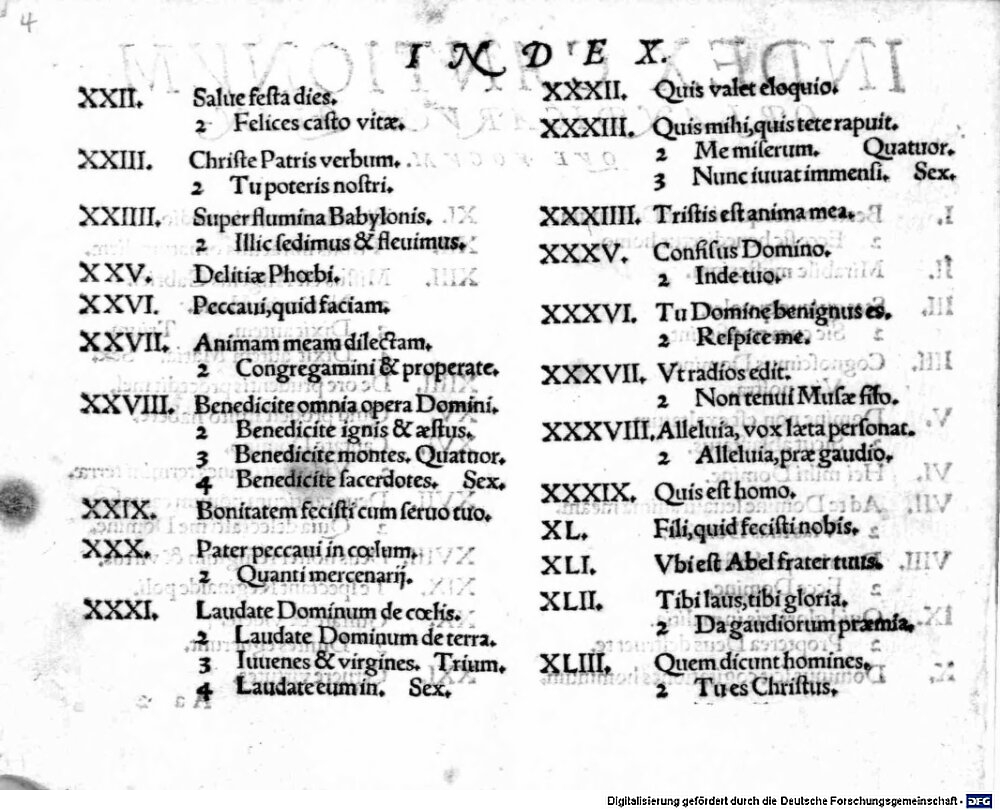 4
INDEX.
XXII. Salue festa dies.
2 Felices casto vitæ.
XXIII. Christe Patris verbum.
2 Tu poteris nostri.
XXIIII. Super flumina Babylonis.
2 Illic sedimus & fleuimus.
XXV. Delitiæ Phœbi.
XXVI. Peccaui, quid faciam.
XXVII. Animam meam dilectam.
2 Congregamini & properate.
XXVIII. Benedicite omnia opera Domini.
2 Benedicite ignis & æstus.
3 Benedicite montes. Quatuor.
4 Benedicite sacerdotes. Sex.
XXIX. Bonitatem fecisti cum seruo tuo.
XXX. Pater peccaui in cœlum.
2 Quanti mercenarij.
XXXI. Laudate Dominum de cœlis.
2 Laudate Dominum de terra.
3 Iuuenes & virgines. Trium.
4 Laudate eum in. Sex.
XXXII. Quis valet eloquio.
XXXIII. Quis mihi, quis te te rapuit.
2 Me miserum. Quatuor.
3 Nunc iuuat immensi. Sex.
XXXIIII. Tristis est anima mea.
XXXV. Confisus Domino.
2 Inde tuo.
XXXVI. Tu Domine benignus es.
2 Respice me.
XXXVII. Vt radios edit.
2 Non tenui Musæ filo.
XXXVIII. Alleluia, vox læta personat.
2 Alleluia, præ gaudio.
XXXIX. Quis est homo.
XL. Fili, quid fecisti nobis.
XLI. Vbi est Abel frater tuus.
XLII. Tibi laus, tibi gloria.
2 Da gaudiorum præmia.
XLIII. Quem dicunt homines.
2 Tu es Christus.
Digitalisierung gefördert durch die Deutsche Forschungsgemeinschaft - DFG